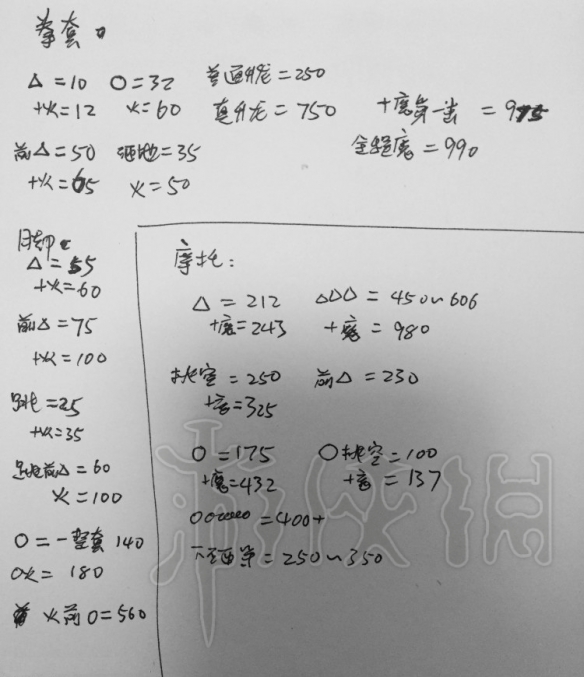 拳套。
△=10 O=32 普通升龙=250
+火=12 火=60 真升龙=750 +魔第一出=975
前△=50 砸地=35 全程魔=990
+火=65 火=50
月却
△=55
+火=60
前△=75
+火=100
跳=25
+火=35
跳前△=60
火=100
O=一整套140
O火=180
火前O=560
摩托:
△=212 △△△=450~606
+魔=243 +魔=980
挑空=250 前△=230
+魔=325
O=175 O挑空=100
+魔=432 +魔=137
OOOOOO=400+
=250~350
游侠网